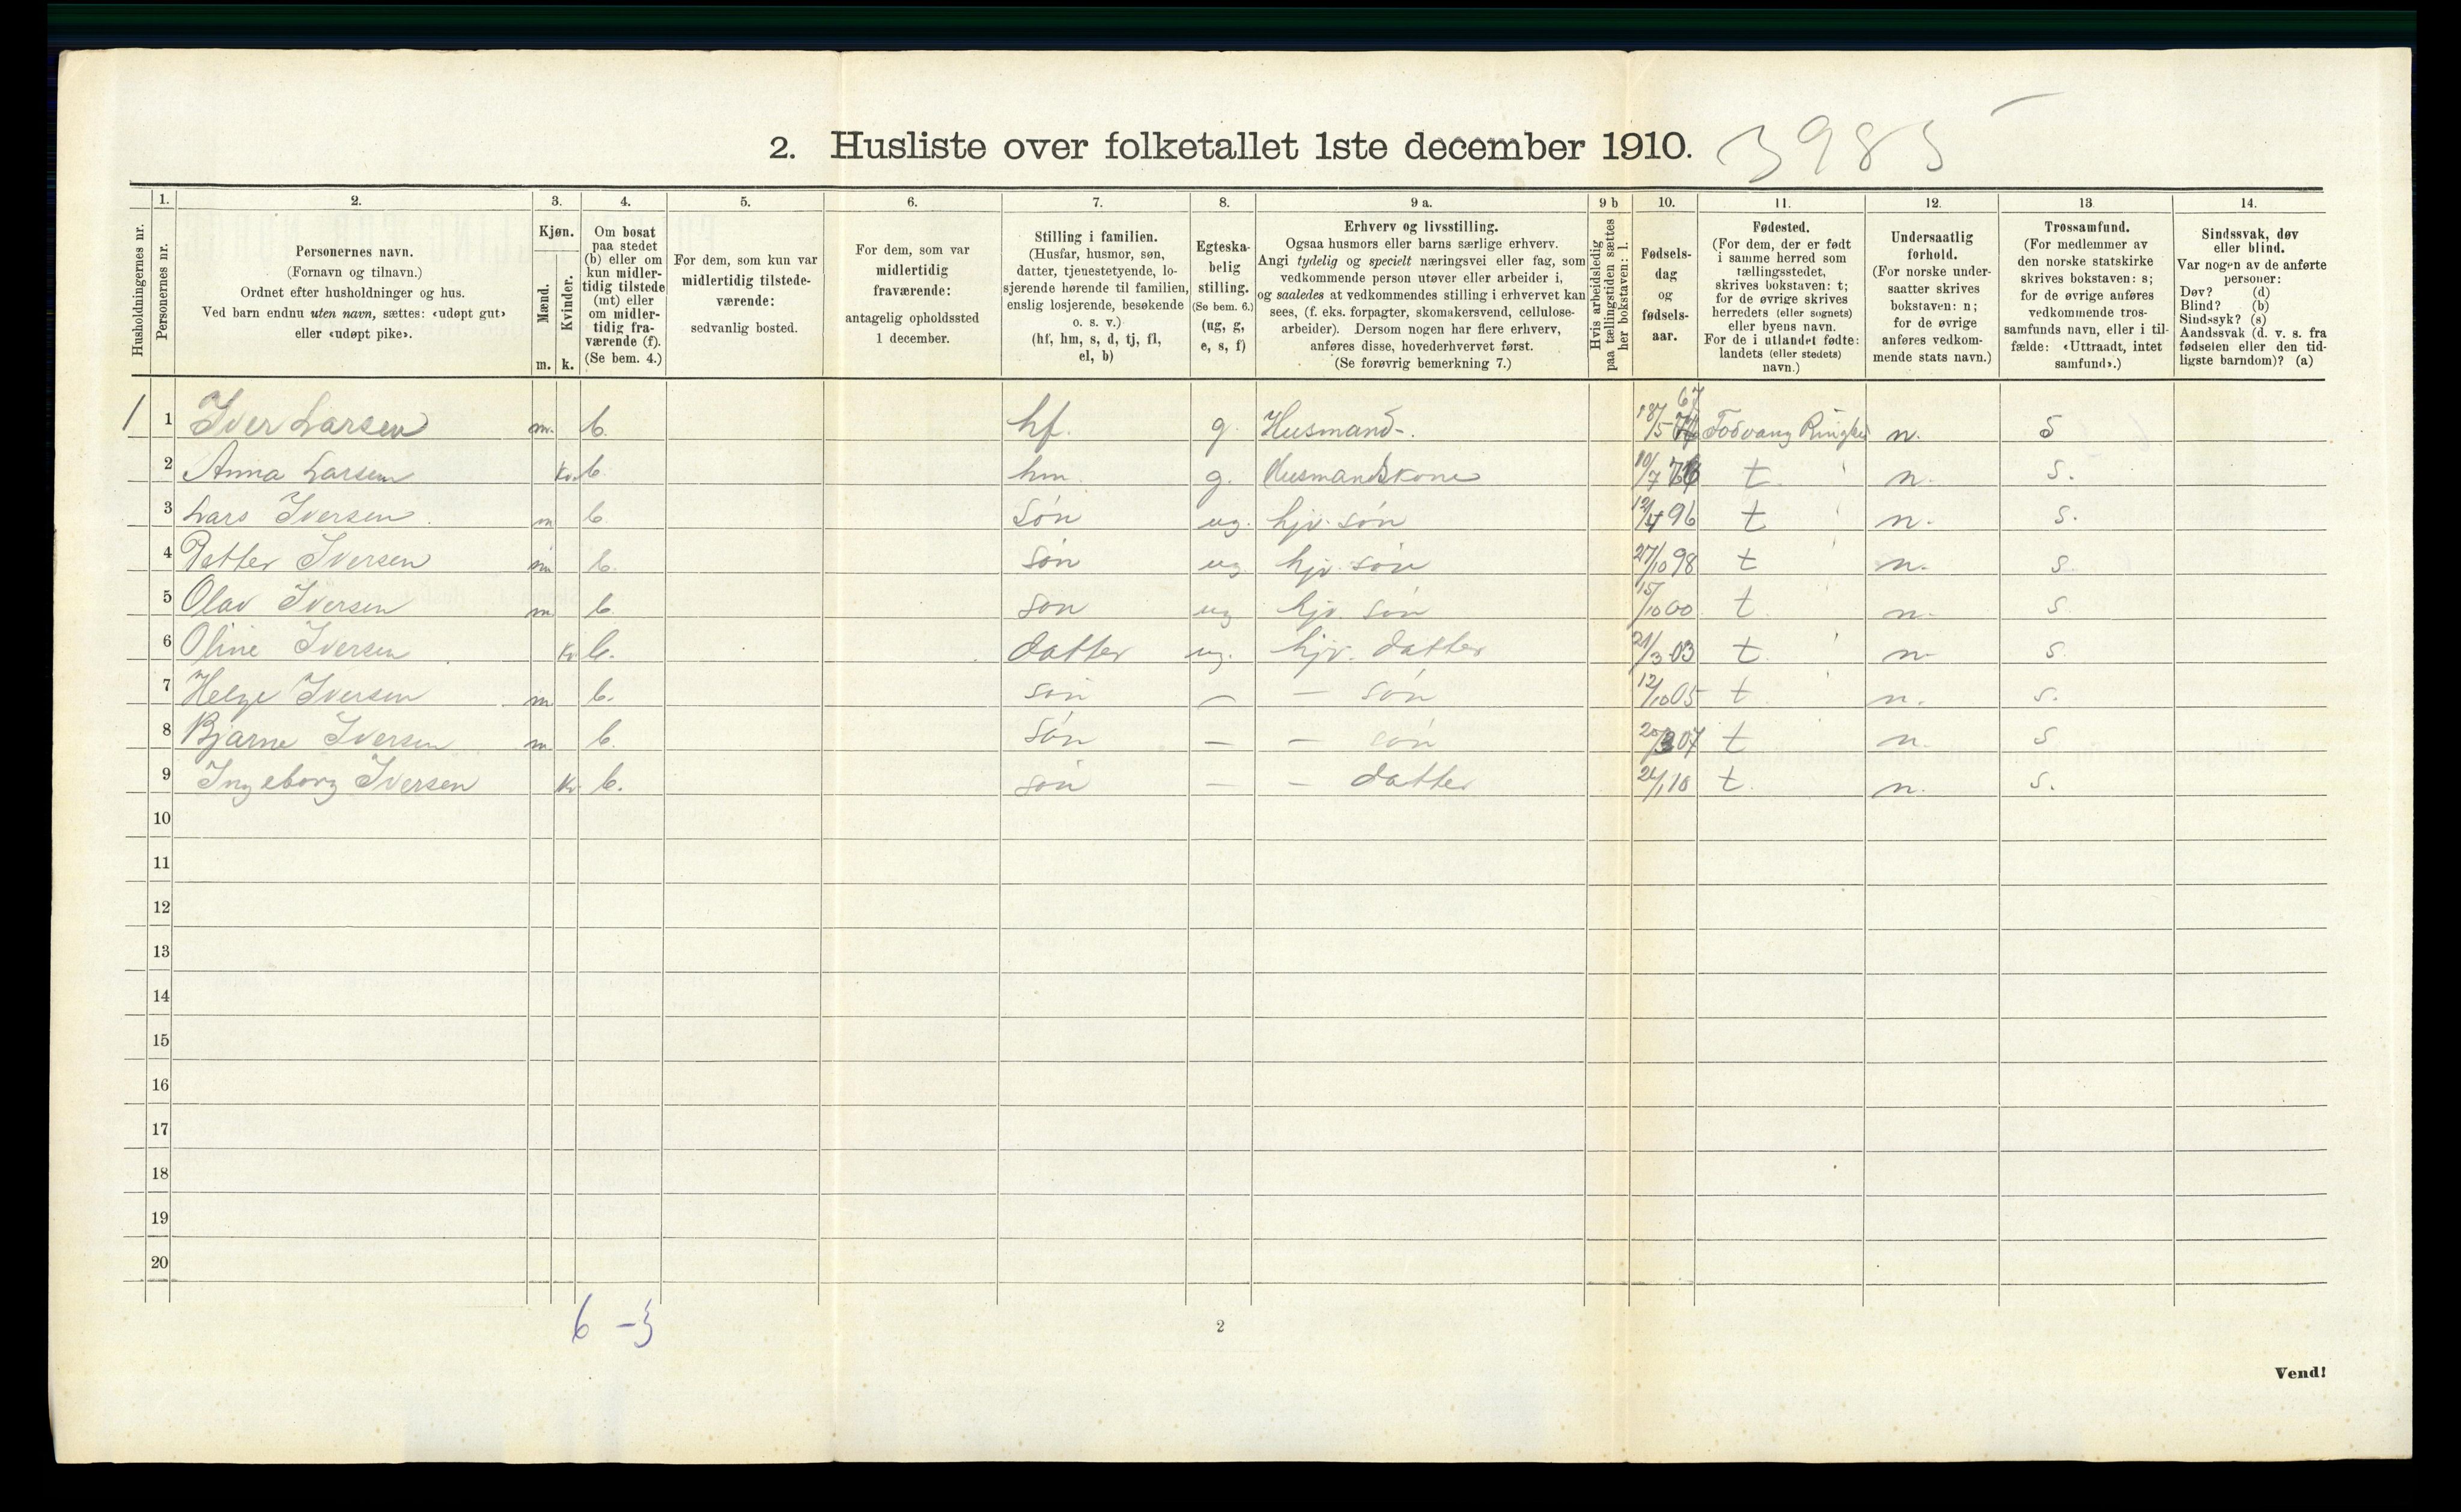 2. Husliste over folketallet 1ste december 1910. 3985
Husholdningernes nr.
1. Personernes nr.
2. Personernes navn. (Fornavn og tilnavn.) Ordnet efter husholdninger og hus. Ved barn endnu uten navn, sættes: «udøpt gut» eller «udøpt pike».
3. Kjøn. Mænd. m. Kvinder. k.
4. Om bosat paa stedet (b) eller om kun midlertidig tilstede (mt) eller om midlertidig fraværende (f). (Se bem. 4.)
5. For dem, som kun var midlertidig tilstedeværende: sedvanlig bosted.
6. For dem, som var midlertidig fraværende: antagelig opholdssted 1 december.
7. Stilling i familien. (Husfar, husmor, søn, datter, tjenestetyende, losjerende hørende til familien, enslig losjerende, besøkende o. s. v.) (hf, hm, s, d, tj, fl, el, b)
8. Egteskabelig stilling. (Se bem. 6.) (ug, g, e, s, f)
9 a. Erhverv og livsstilling. Ogsaa husmors eller barns særlige erhverv. Angi tydelig og specielt næringsvei eller fag, som vedkommende person utøver eller arbeider i, og saaledes at vedkommendes stilling i erhvervet kan sees, (f. eks. forpagter, skomakersvend, cellulosearbeider). Dersom nogen har flere erhverv, anføres disse, hovederhvervet først. (Se forøvrig bemerkning 7.)
9 b Hvis arbeidsledig paa tællingstiden sættes her bokstaven: l.
10. Fødselsdag og fødselsaar.
11. Fødested. (For dem, der er født i samme herred som tællingsstedet, skrives bokstaven: t; for de øvrige skrives herredets (eller sognets) eller byens navn. For de i utlandet fødte: landets (eller stedets) navn.)
12. Undersaatlig forhold. (For norske undersaatter skrives bokstaven: n; for de øvrige anføres vedkommende stats navn.)
13. Trossamfund. (For medlemmer av den norske statskirke skrives bokstaven: s; for de øvrige anføres vedkommende trossamfunds navn, eller i tilfælde: «Uttraadt, intet samfund».)
14. Sindssvak, døv eller blind. Var nogen av de anførte personer: Døv? (d) Blind? (b) Sindssyk? (s) Aandssvak (d. v. s. fra fødselen eller den tidligste barndom)? (a)
1 1 Iver Larsen m. b. hf. g. Husmand-. 18/5 67 n. S
2 Anna Larsen kv. b hm. g. Husmandskone 10/7 t. n. s.
3 Lars Iversen m b søn ug. hjv. søn 12/4 96 t n. s.
4 Petter Iversen m b. søn ug. hjv. søn 27/10 98 t n. s
5 Olav Iversen m b. søn ug hjv. søn 15/10 00 t. n. s
6 Oline Iversen kv b. datter ug. hjv. datter 21/3 03 t. n s
7 Helge Iversen m b. søn – – søn 12/10 05 t n. s.
8 Bjarne Iversen m b. søn – – søn 20/3 07 t n. s
9 Ingeborg Iversen kv. b. søn – – datter 24/1 10 t. n. s.
10
11
12
13
14
15
16
17
18
19
20
6 – 3
2
Vend!